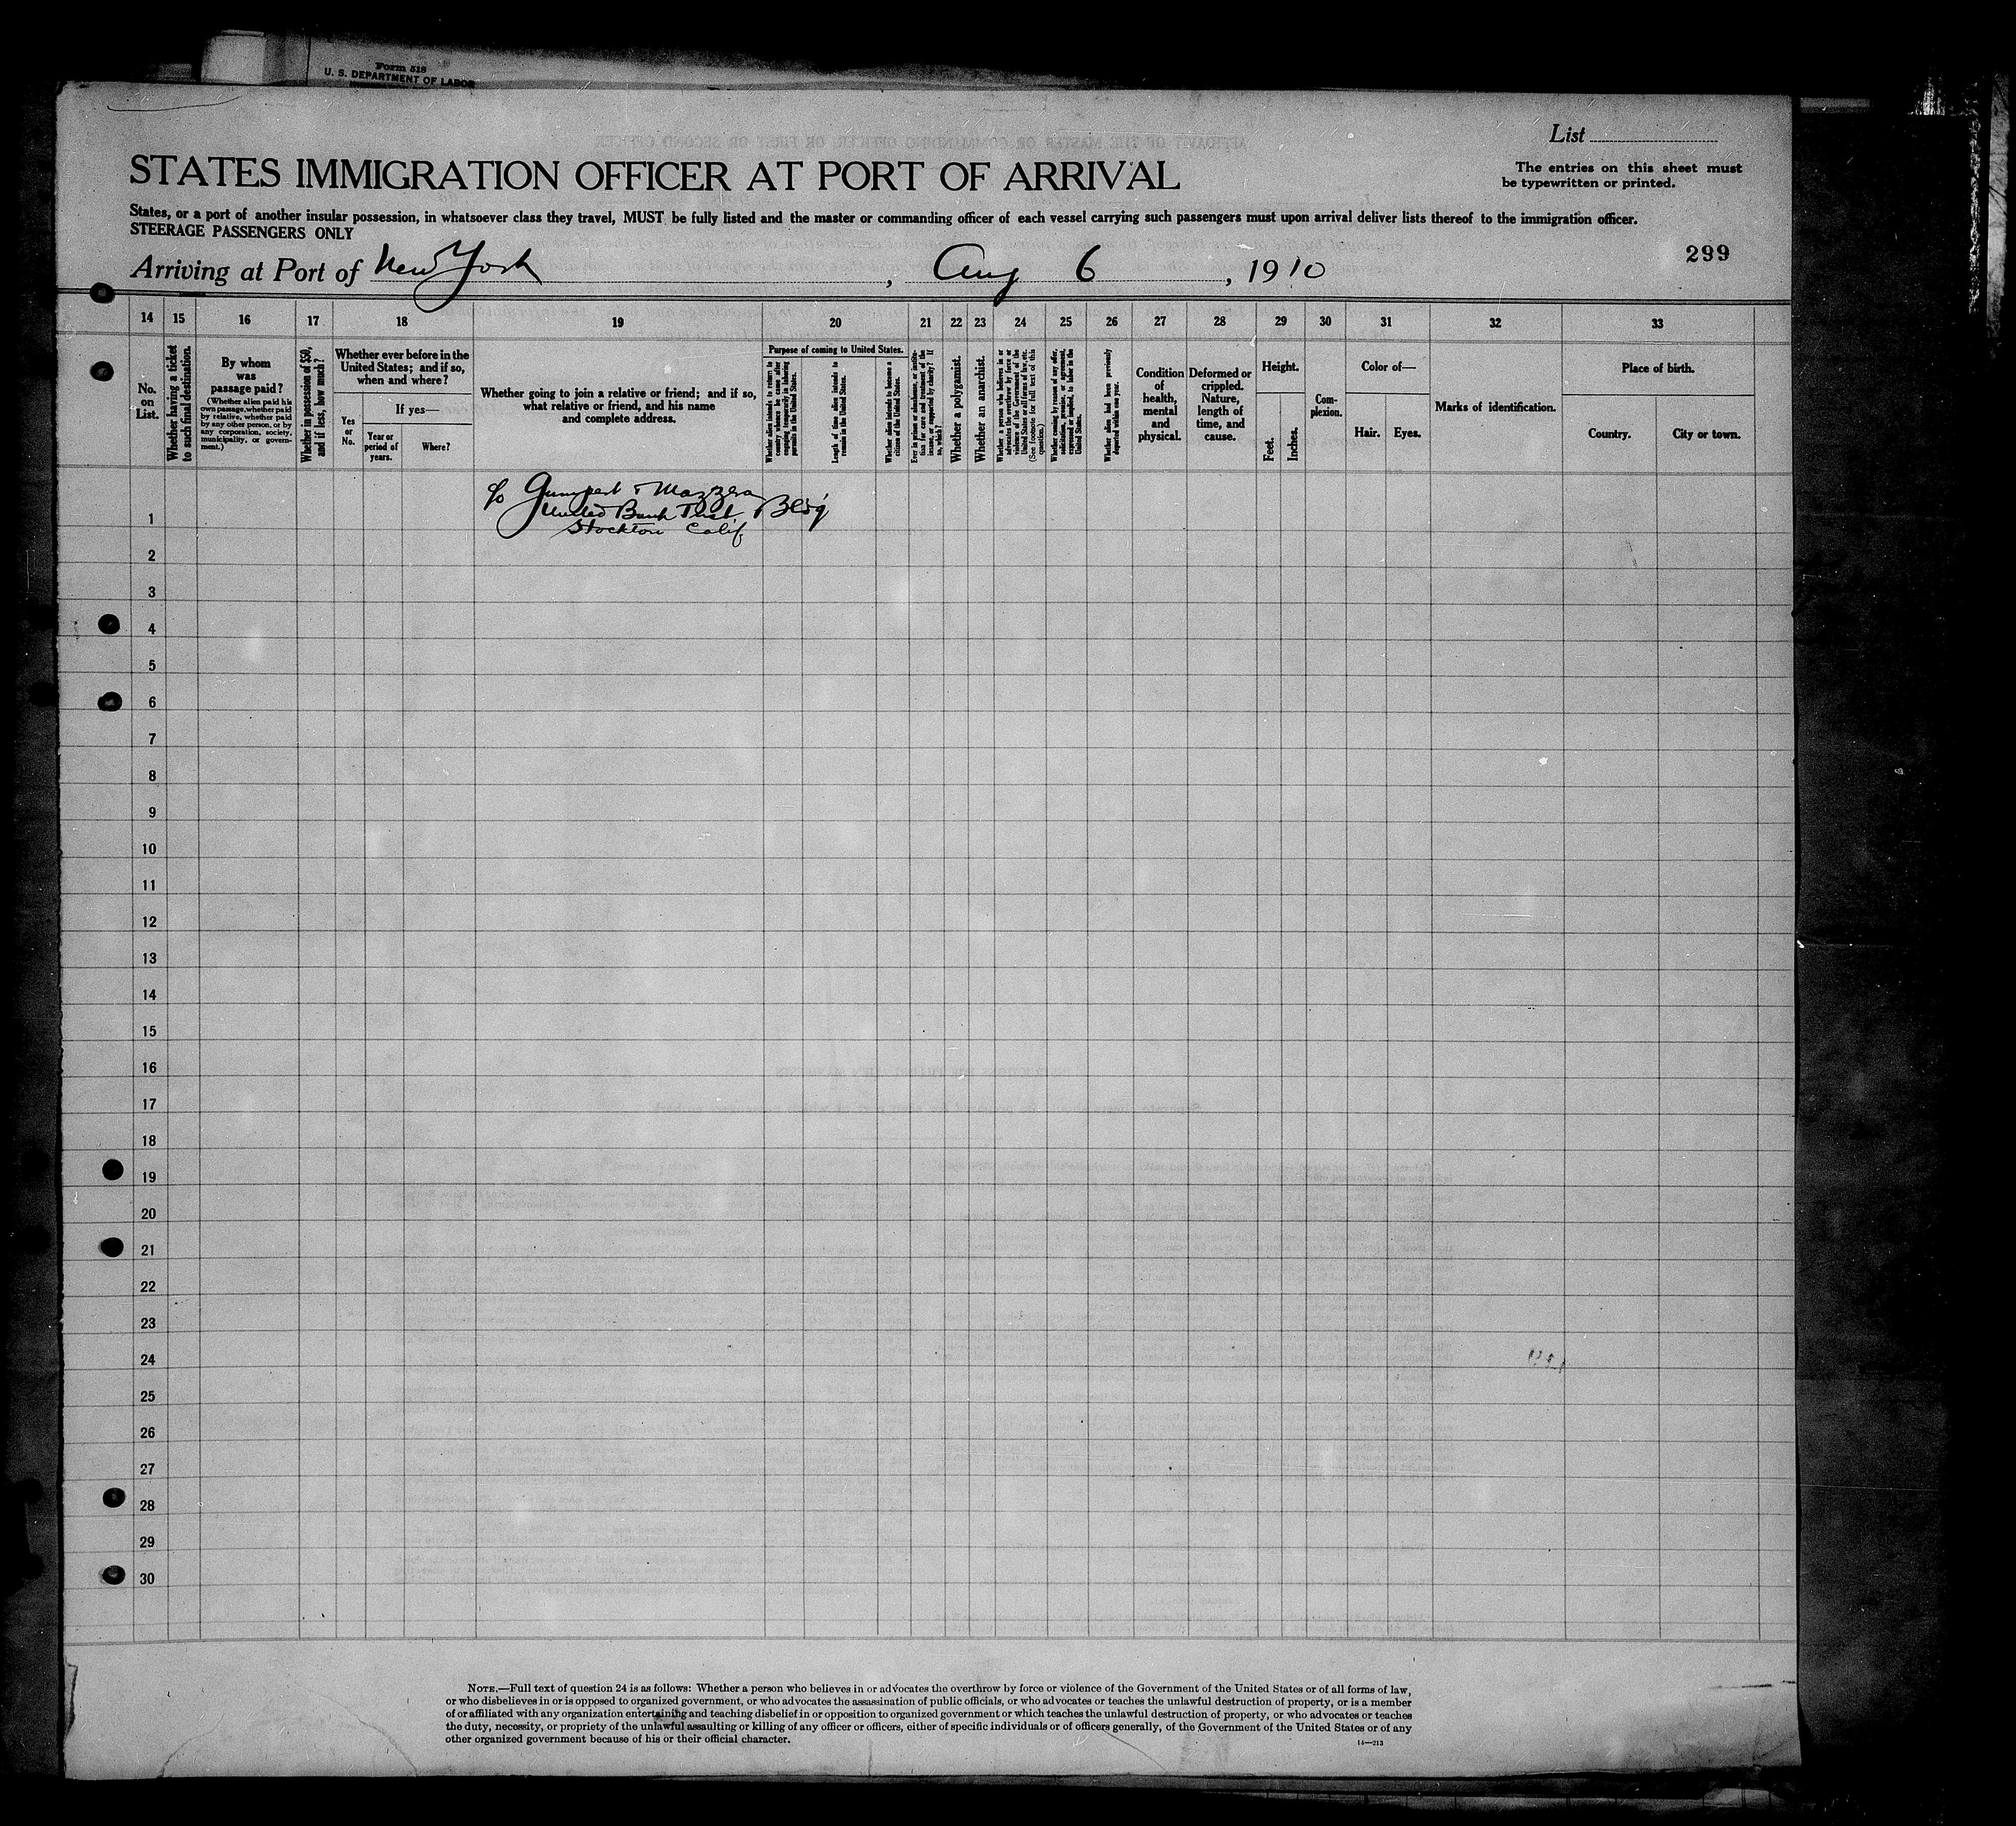 Form 518
U. S. DEPARTMENT OF LABOR
List
STATES IMMIGRATION OFFICER AT PORT OF ARRIVAL
The entries on this sheet must
be typewritten or printed.
States, or a port of another insular possession, in whatsoever class they travel, MUST be fully listed and the master or commanding officer of each vessel carrying such passengers must upon arrival deliver lists thereof to the immigration officer.
STEERAGE PASSENGERS ONLY
299
Arriving at Port of New York, Aug 6, 1910
14 15 16 17 18 19 20 21 22 23 24 25 26 27 28 29 30 31 32 33
No.
on
List.
Whether having a ticket
to such final destination.
By whom
was
passage paid?
(Whether alien paid his
own passage, whether paid
by relative, whether paid
by any other person, or by
any corporation, society,
municipality, or govern-
ment.)
Whether in possession of $50,
and if less, how much?
Whether ever before in the
United States; and if so,
when and where?
Yes
or
No.
If yes—
Year or
period of
years.
Where?
Whether going to join a relative or friend; and if so,
what relative or friend, and his name
and complete address.
Purpose of coming to United States.
Whether alien intends to return to
country whence he came after
engaging temporarily in laboring
pursuits in the United States.
Length of time alien intends to
remain in the United States.
Whether alien intends to become a
citizen of the United States.
Ever in prison or almshouse, or institu-
tion for care and treatment of the
insane, or supported by charity? If
so, which?
Whether a polygamist.
Whether an anarchist.
Whether a person who believes in or
advocates the overthrow by force or
violence of the Government of the
United States or all forms of law, etc.
(See footnote for full text of this
question.)
Whether coming by reason of any offer,
solicitation, promise, or agreement,
expressed or implied, to labor in the
United States.
Whether alien had been previously
deported within one year.
Condition
of
health,
mental
and
physical.
Deformed or
crippled.
Nature,
length of
time, and
cause.
Height.
Feet.
Inches.
Com-
plexion.
Color of—
Hair.
Eyes.
Marks of identification.
Place of birth.
Country.
City or town.
c/o Gumpert & Mazzera
United Bank Trust Bldg
Stockton Calif
1
2
3
4
5
6
7
8
9
10
11
12
13
14
15
16
17
18
19
20
21
22
23
24
25
26
27
28
29
30
NOTE.—Full text of question 24 is as follows: Whether a person who believes in or advocates the overthrow by force or violence of the Government of the United States or of all forms of law,
or who disbelieves in or is opposed to organized government, or who advocates the assassination of public officials, or who advocates or teaches the unlawful destruction of property, or is a member
of or affiliated with any organization entertaining and teaching disbelief in or opposition to organized government or which teaches the unlawful destruction of property, or who advocates or teaches
the duty, necessity, or propriety of the unlawful assaulting or killing of any officer or officers, either of specific individuals or of officers generally, of the Government of the United States or of any
other organized government because of his or their official character.
14—213